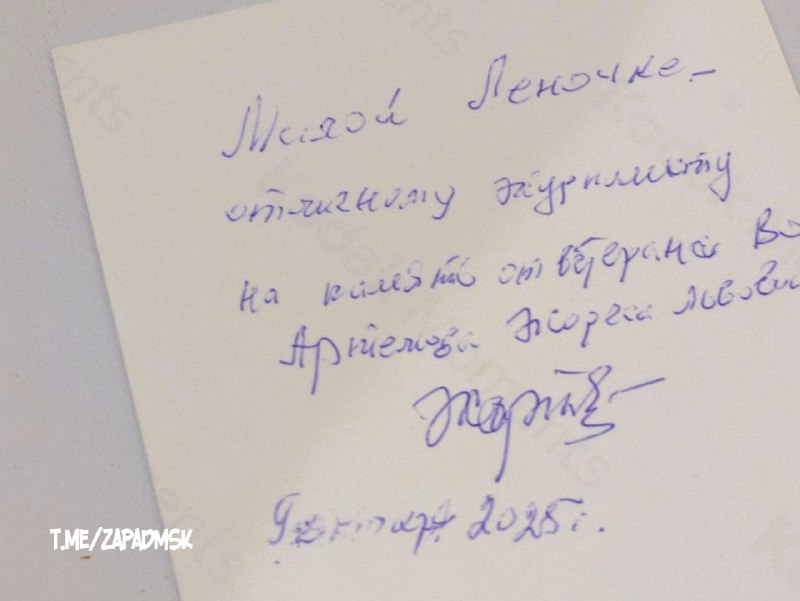 Милой Леночке –
отличному журналисту
на память от ветерана Во
Артемова Жореса Львови
9 января 2025 г.
T.ME/ZAPADMSK